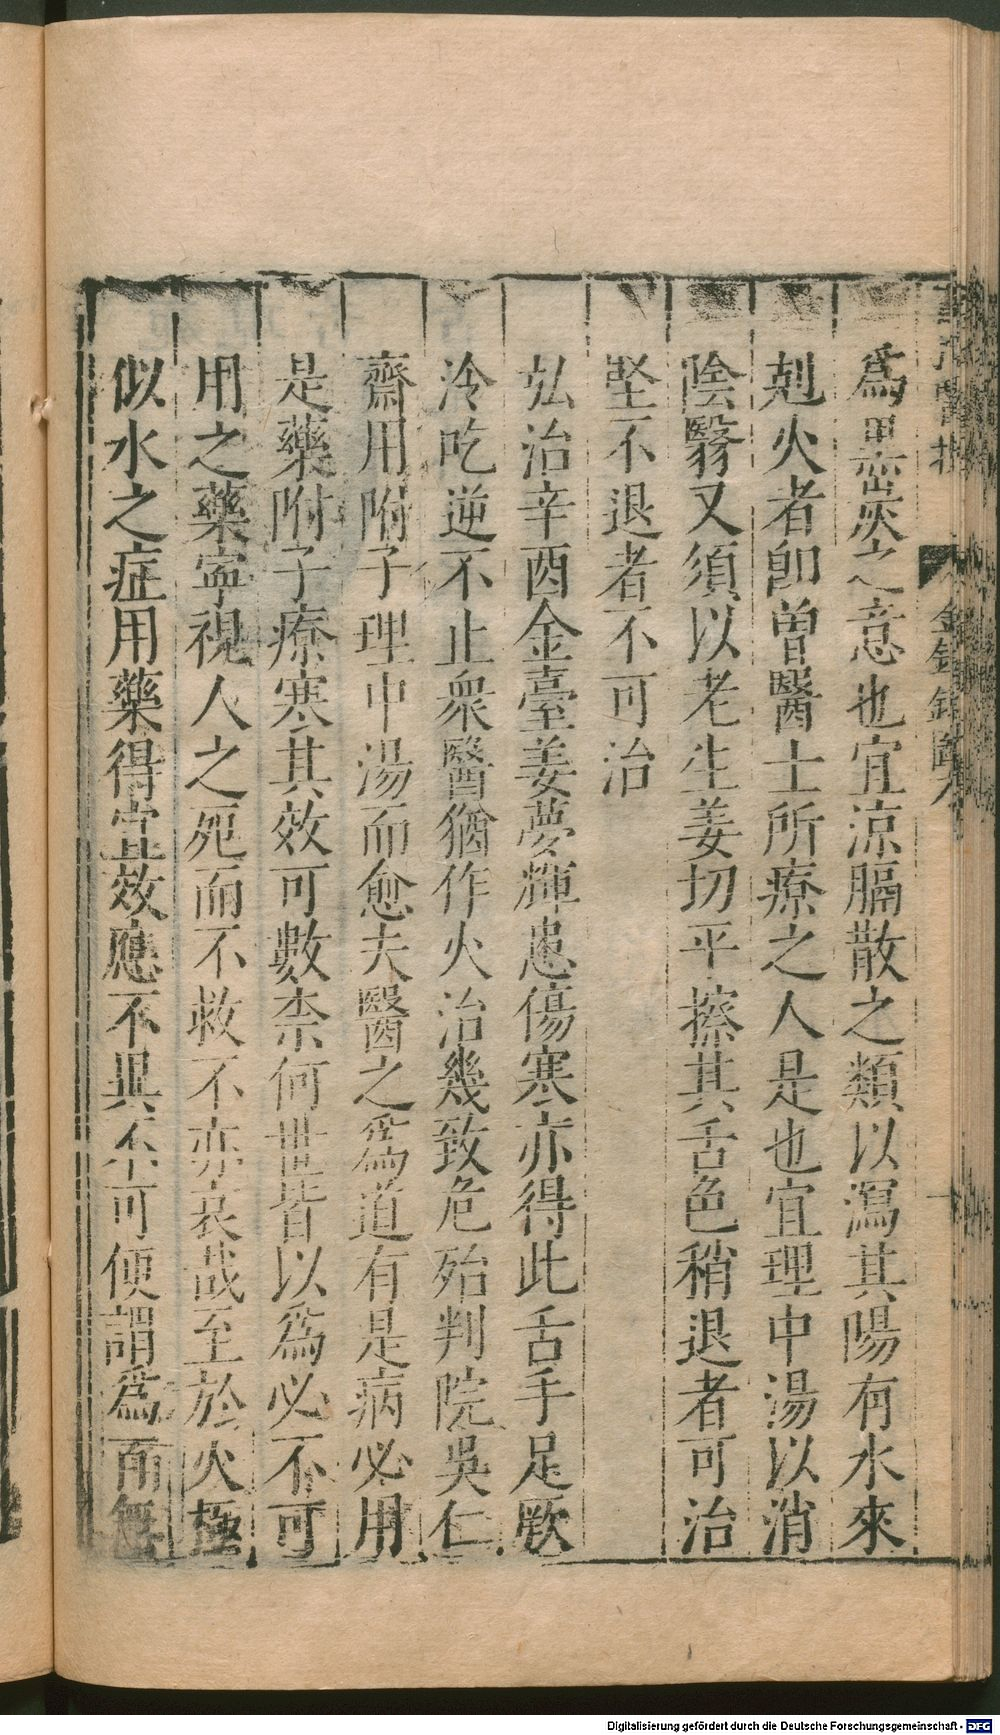 爲黑蕊灰之意也宜涼膈散之類以瀉其陽有水來
剋火者卽曾醫士所療之人是也宜理中湯以消
陰翳又須以老生姜切平擦其舌色稍退者可治
堅不退者不可治
弘治辛酉金臺姜夢輝患傷寒亦得此舌手足厥
冷吃逆不止衆醫猶作火治幾致危殆判院吳仁
齋用附子理中湯而愈夫醫之爲道有是病必用
是藥附子療寒其效可數柰何世皆以爲必不可
用之藥寜視人之死而不救不亦哀哉至於火極
似水之症用藥得宜效應不異不可便謂爲百無
Digitalisierung gefördert durch die Deutsche Forschungsgemeinschaft - DFG